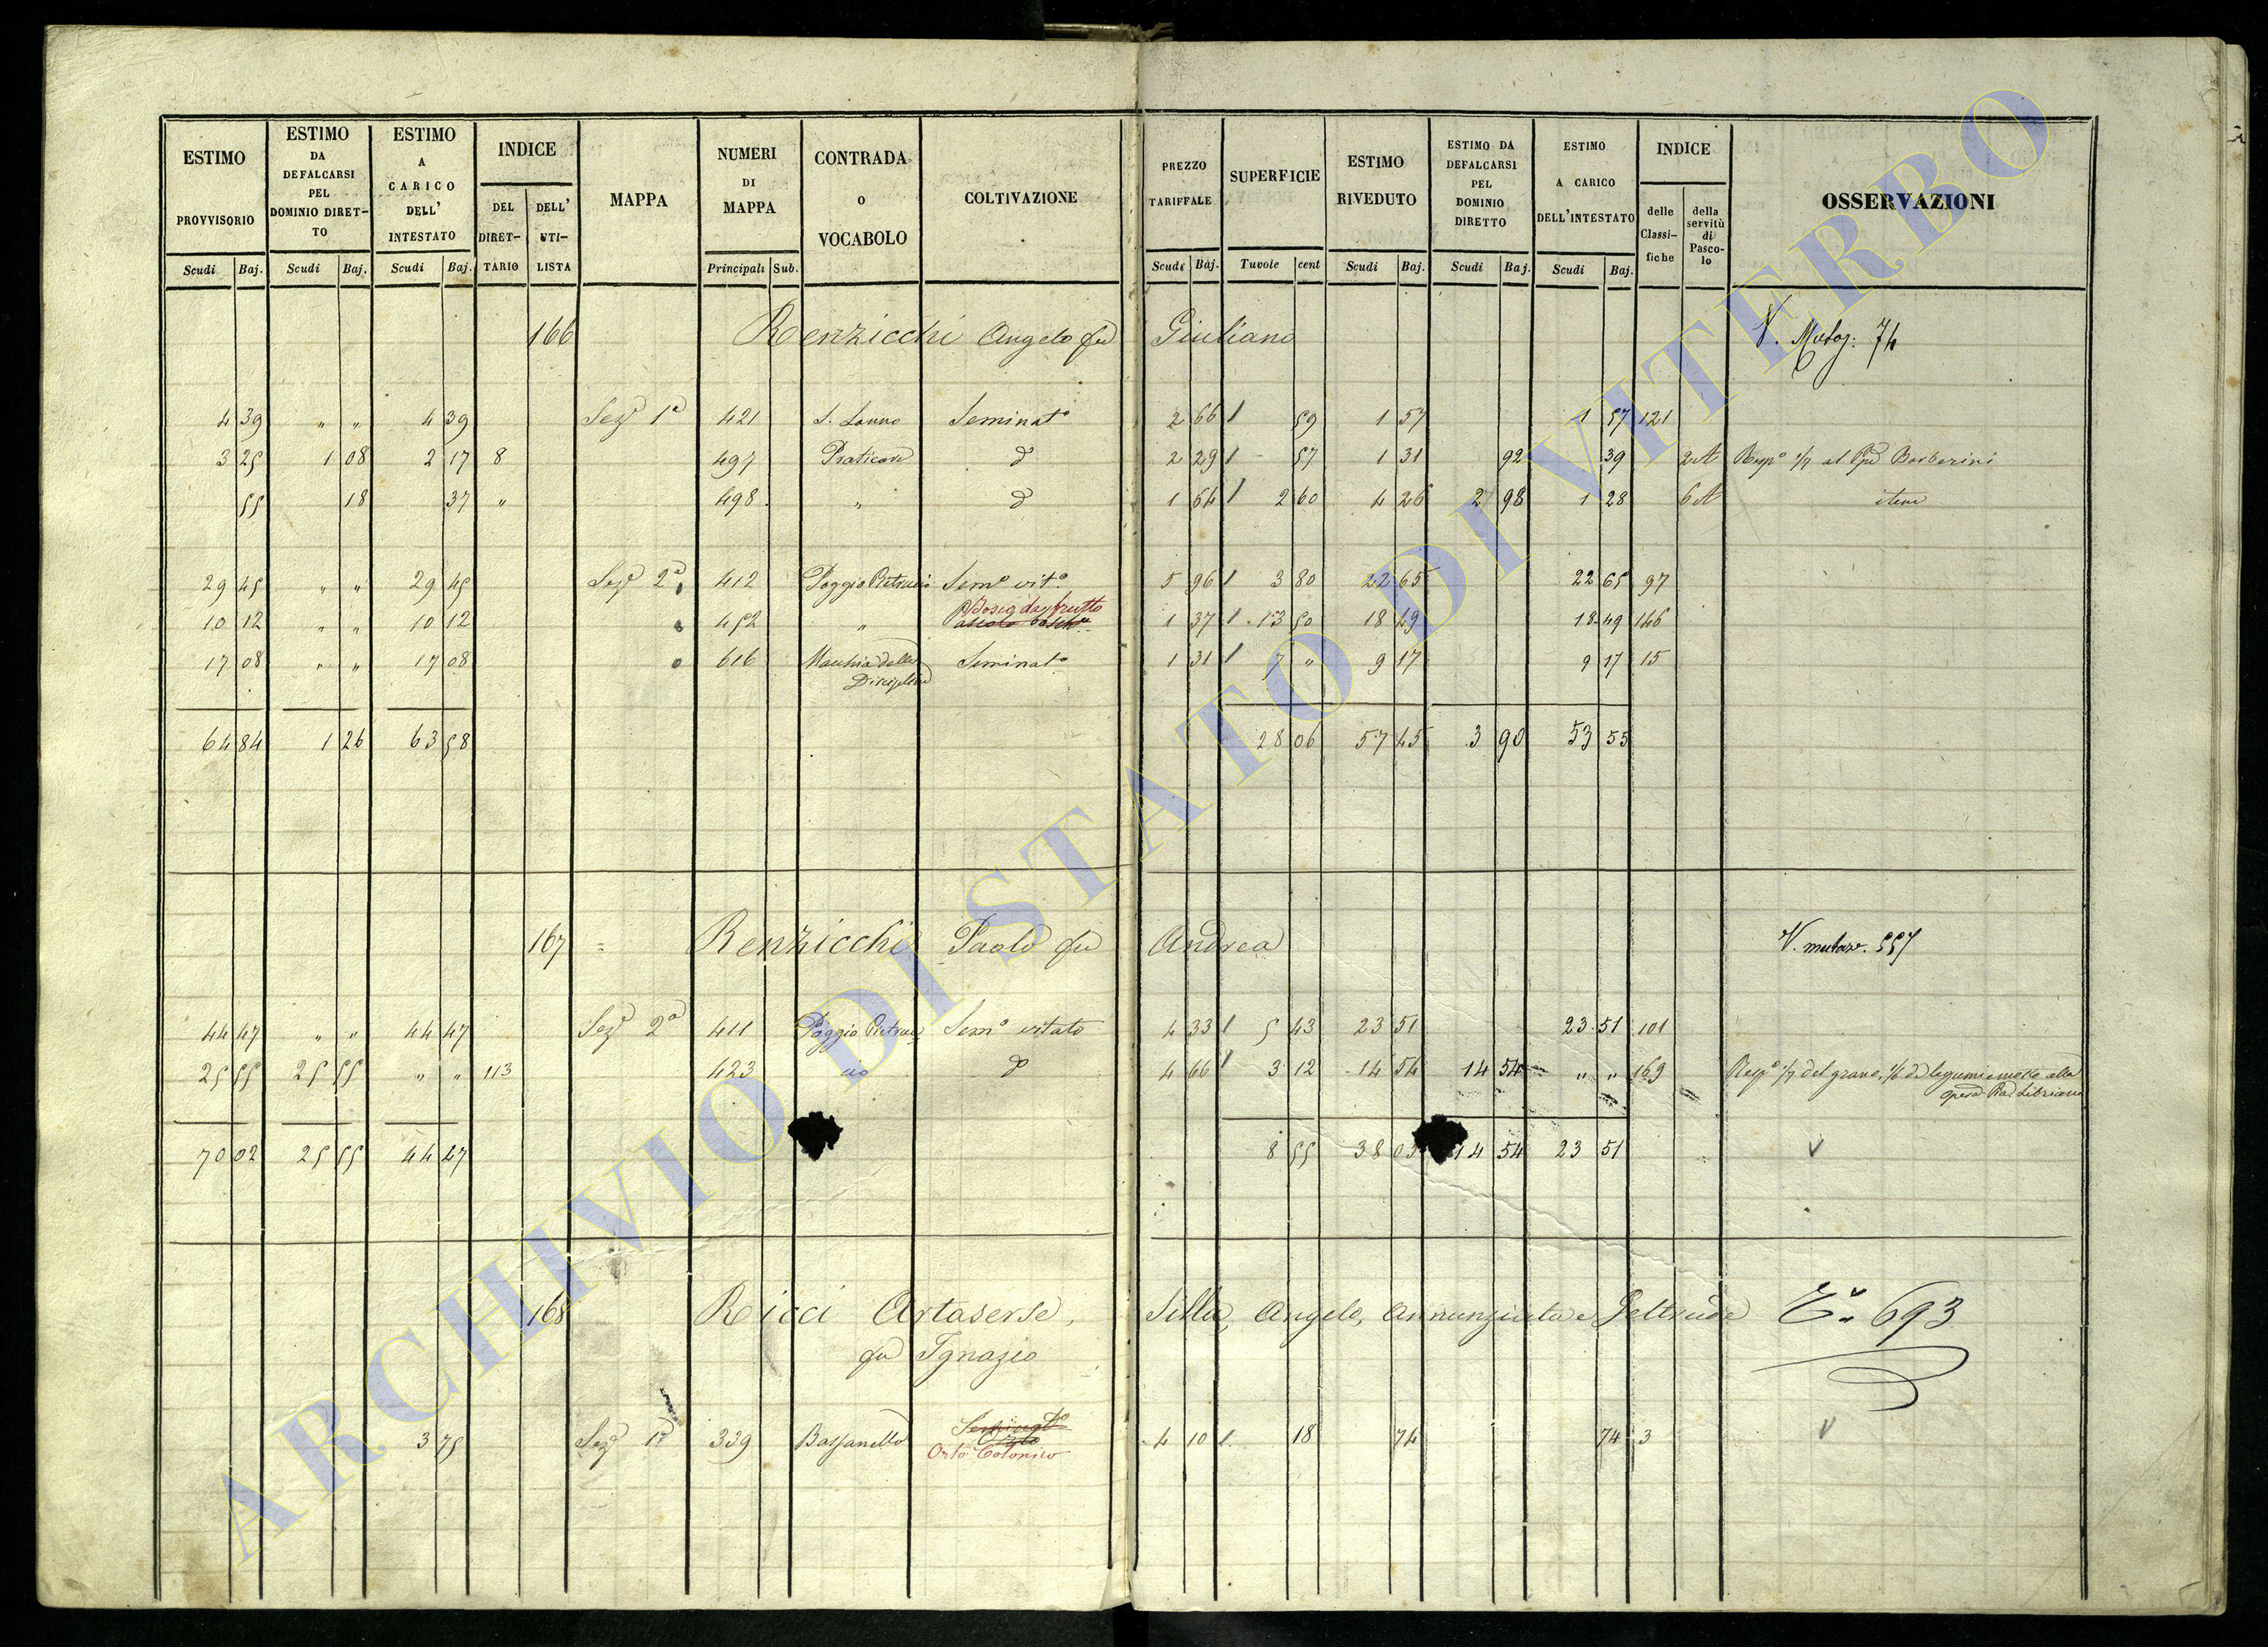 ESTIMO PROVVISORIO Scudi Baj.
ESTIMO DA DEFALCARSI PEL DOMINIO DIRET-TO Scudi Baj.
ESTIMO A CARICO DELL' INTESTATO Scudi Baj.
INDICE DEL DIRET-TARIO DELL' UTI-LISTA
MAPPA
NUMERI DI MAPPA Principali Sub.
CONTRADA O VOCABOLO
COLTIVAZIONE
PREZZO TARIFFALE Scudi Baj.
SUPERFICIE Tavole cent
ESTIMO RIVEDUTO Scudi Baj.
ESTIMO DA DEFALCARSI PEL DOMINIO DIRETTO Scudi Baj.
ESTIMO A CARICO DELL'INTESTATO Scudi Baj.
INDICE delle Classi-fiche della servitù di Pasco-lo
OSSERVAZIONI
166 Renzicchi Angelo fu Giuliano V. 74
4 39 " " 4 39 Seze 1a 421 S. Seminato 2 66 / 59 1 57 1 57 121
3 25 1 08 2 17 8 497 Praticare do 2 29 / 57 1 31 92 39 2 A Respe 1/7 al Barberini
55 18 37 " 498 " do 1 64 / 2 60 4 26 2 98 1 28 6 A item
29 45 " " 29 45 Sezе 2a 412 Poggio Pietruccio Semo vito 5 96 / 3 80 22 65 22 65 97
10 12 " " 10 12 452 " Bosco da frutto Pascolo 1 37 / 13 50 18 49 18 49 146
17 08 " " 17 08 616 Macchia della Disciplina Seminato 1 31 / 7 " 9 17 9 17 15
64 84 1 26 63 58 28 06 57 45 3 90 53 55
167 Renzicchi Paolo fu Andrea V. mutaz. 557
44 47 " " 44 47 Seze 2a 411 Poggio Pietruc Semo vitato 4 33 / 5 43 23 51 23 51 101
25 55 25 55 " " 113 423 cio do 4 66 / 3 12 14 54 14 54 " " 169 Respe 1/7 del grano, 1/6 di legumi e mosto alla
opera
70 02 25 55 44 47 8 55 38 05 14 54 23 51
168 Ricci Artaserse, Silla, Angelo, Annunziata e Geltrude 693
fu Ignazio
3 75 Seze 1a 339 Bassanello Seminato Orto 4 10 / 18 74 74 3
Orto Colonico
ARCHIVIO DI STATO DI VITERBO